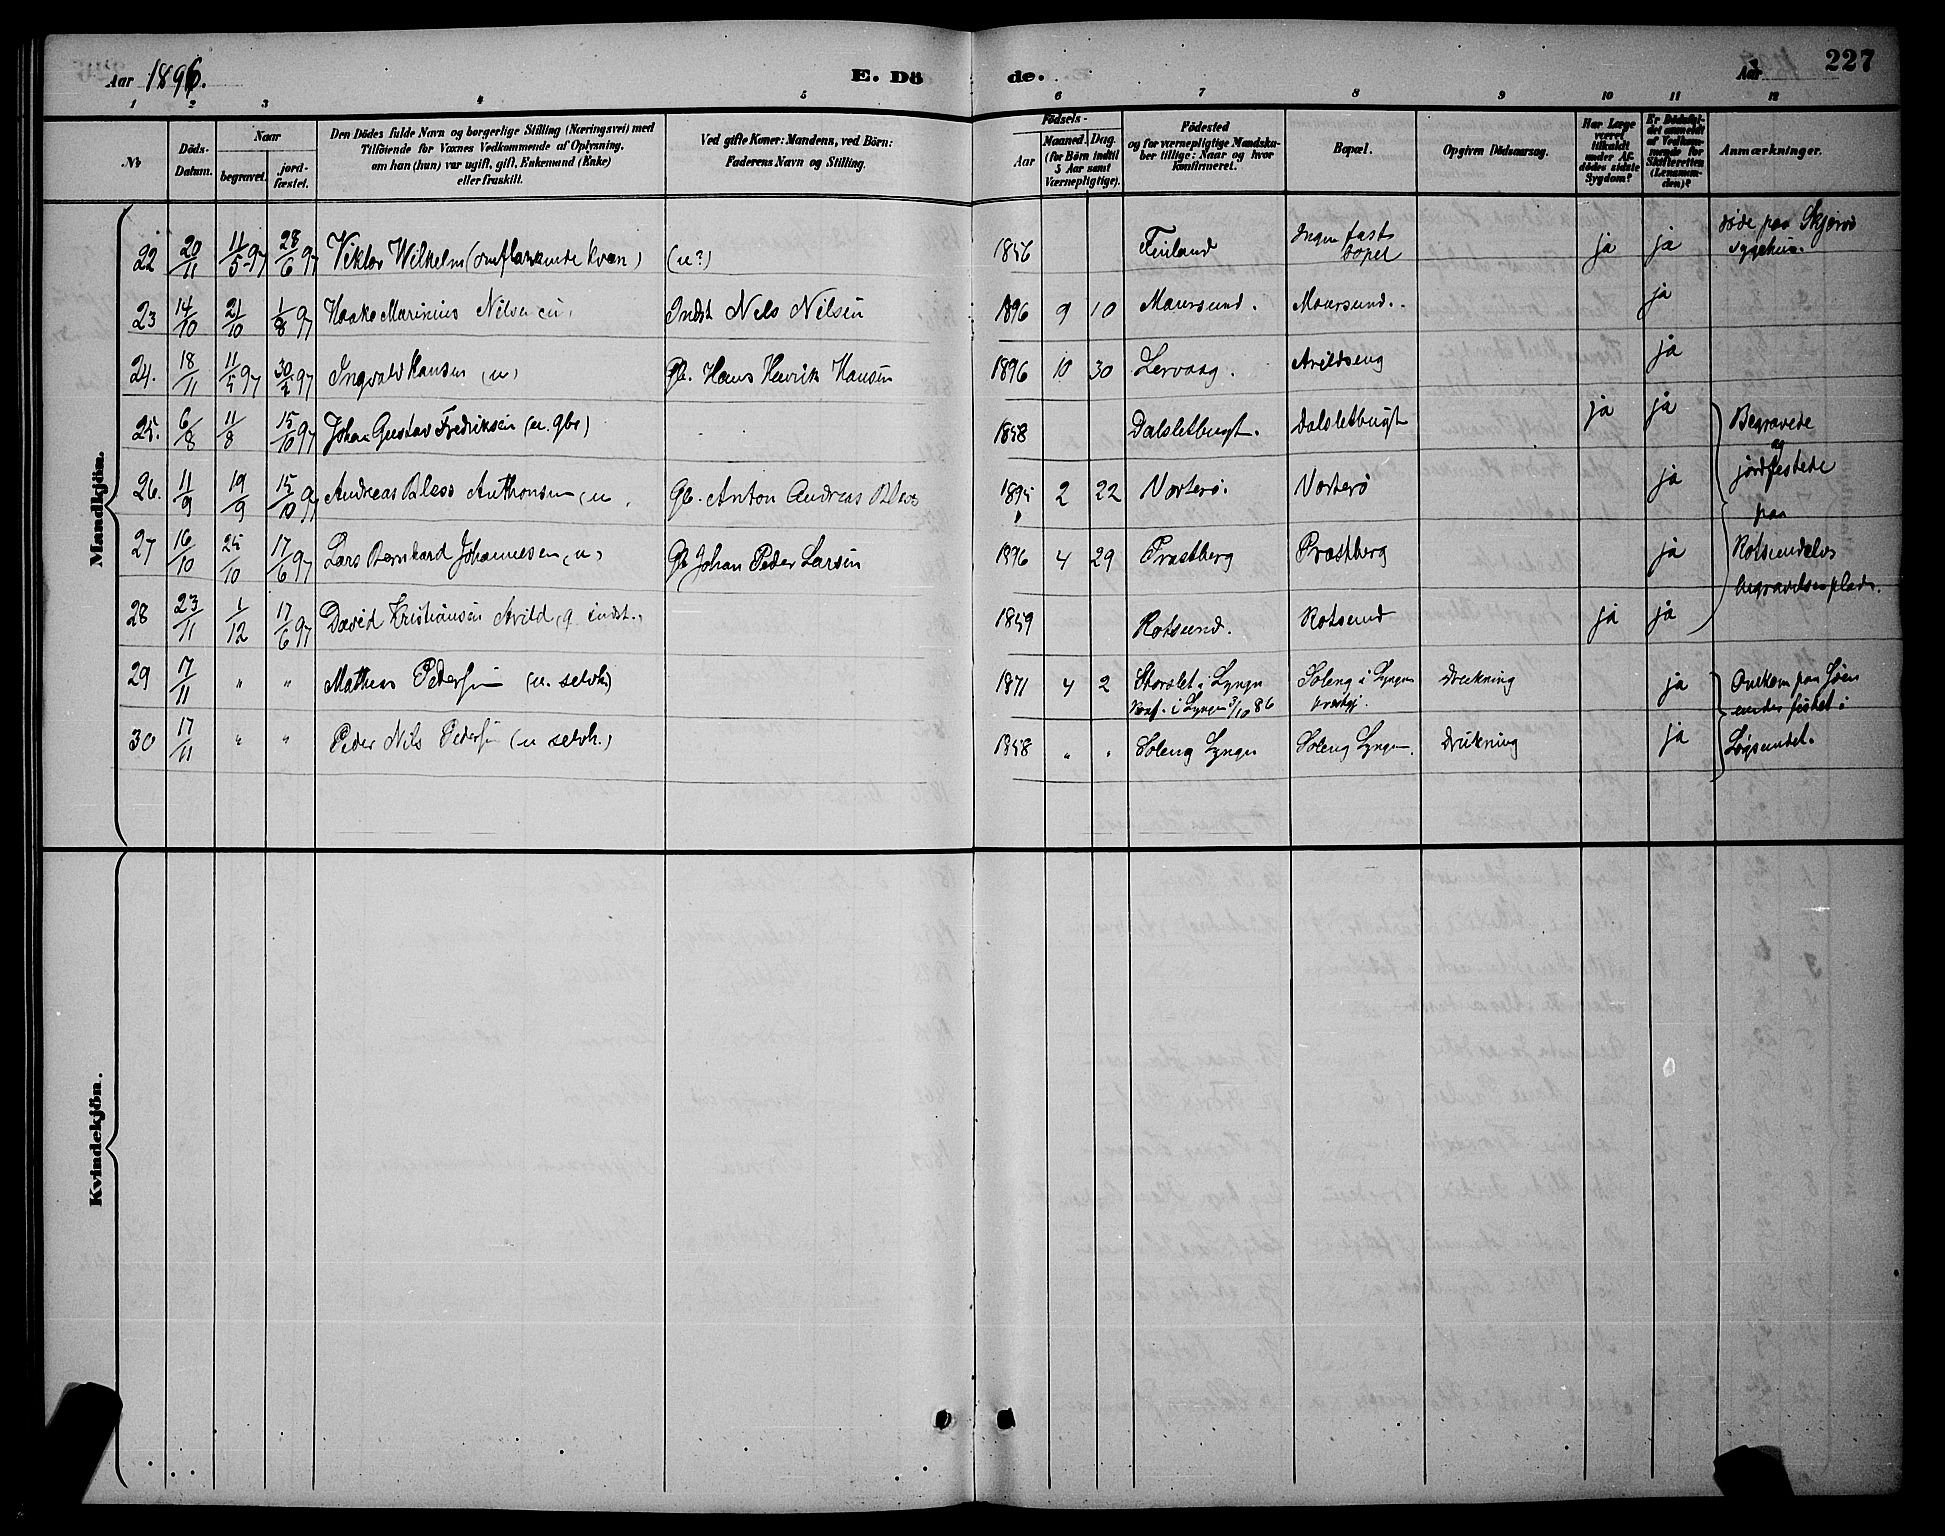 Aar 1896. E. Dö de. Aar 227
1 2 3 4 5 6 7 8 9 10 11 12
№ Döds-Datum. Naar begravet. jordfæstet. Den Dödes fulde Navn og borgerlige Stilling (Næringsvei) med Tilföiende for Voxnes Vedkommende af Oplysning, om han (hun) var ugift, gift, Enkemand (Enke) eller fraskilt. Ved gifte Koner: Mandens, ved Börn: Faderens Navn og Stilling. Födsels- Aar Maaned. Dag. (for Börn indtil 5 Aar samt Værnepligtige). Födested og for værnepligtige Mandskaber tillige: Naar og hvor konfirmeret. Bopæl. Opgiven Dödsaarsag. Har Læge været tilkaldt under Afdödes sidste Sygdom? Er Dödsfaldet anmeldt af Vedkommende for Skifteretten (Lensmanden)? Anmærkninger.
Mandkjön.
22 20/11 11/5-97 28/6 97 Viktor Wilhelm (omflakkende kvæn) (u?) 1856 Finland Ingen fast bopel ja ja döde paa Skjervö sygehus.
23 14/10 21/10 1/8 97 Haako Marinius Nilsen (u) Indst Nels Nilsen 1896 9 10 Maursund. Maursund. ja
24. 18/11 11/5 97 30/5 97 Ingvald Hansen (u) Gb. Hans Henrik Hansen 1896 10 30 Lervaag. Avildseng ja
25. 6/8 11/8 15/10 97 Johan Gustav Fredriksen (u. gbr) 1858 Dalsletbugt. Dalsletbugt ja ja Begravede
26. 11/9 19/9 15/10 97 Andreas Bless Anthonsen (u. Gb. Anton Andreas Bless 1895 2 22 Vorterö. Vorterö ja og jordfestede paa
27 16/10 25/10 17/6 97 Lars Bernhard Johannesen (u) Gb Johan Peder Larsen 1896 4 29 Prastberg Prastberg ja Rotsundelvs begravelsesplads.
28 23/11 1/12 17/6 97 David Kristiansen Avild, g. indst. 1859 Rotsund. Rotsund ja ja
29 17/11 " " Mathias Pedersen (u. selvh) 1871 4 2 Storslet i Lyngn Konf. i Lyngen 3/10 86 Soleng i Lyngen Prestgj. Drukning ja Omkom paa Söen under fisket i
30 17/11 " " Peder Nils Pedersen (u selvh.) 1858 " " Soleng Lyngn Soleng Lyngn. Drukning ja Lögsundet.
Kvindekjön.